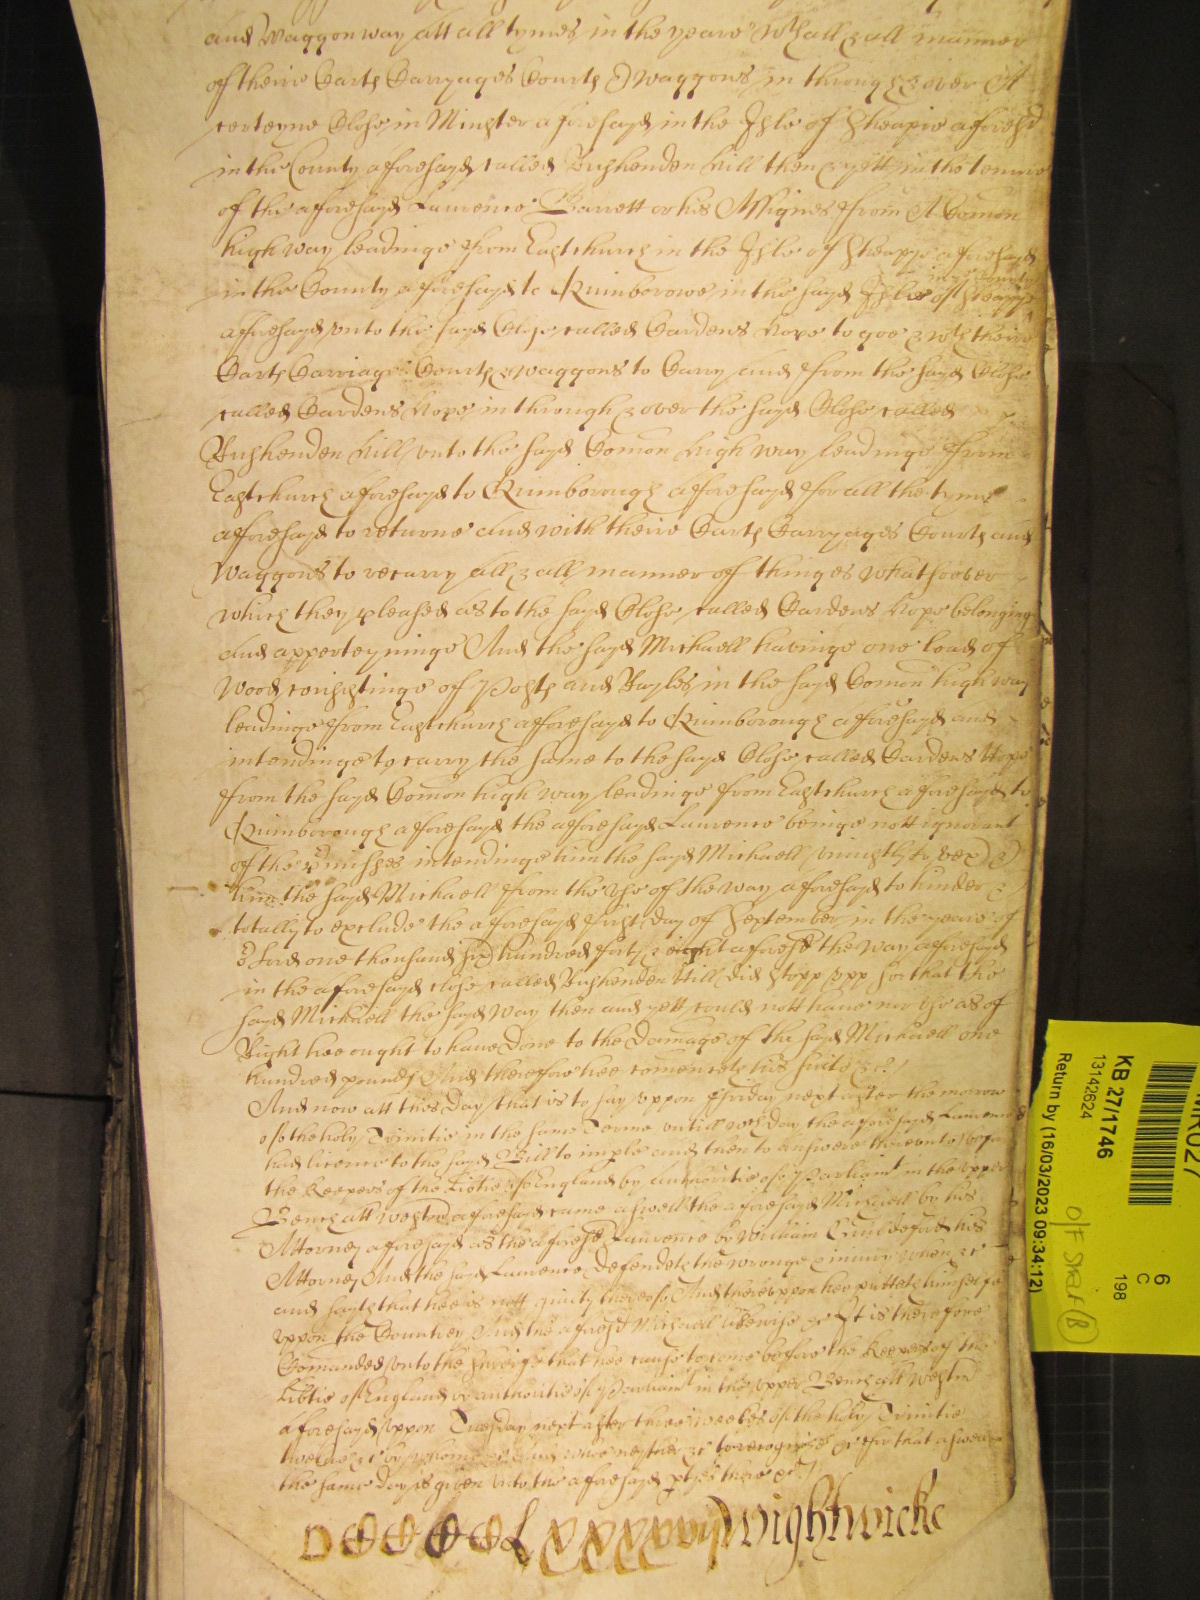 and Waggon way att all tymes in the yeare wth all & all manner
of theire Carts Carryages Courts & waggons in through & over A
certeyne Close in Minster aforesayd in the Isle of Sheapie aforesd
in the County afforesayd called Bushenden hill then & yett in the tenure
of the afforesayd Laurence Barrett or his Assignes ffrom A Comon
high way leadinge ffrom Eastchurch in the Isle of Sheapye aforesayd
in the County aforesayd to Kinnborowe in the sayd Isle of Sheapye
in ye County
afforesayd vnto the sayd Close called Gardens hope to goe & wth theire
Carts Carriages Courts & waggons to Carry and ffrom the sayd Close
called Gardens hope in through & over the sayd Close called
Bushenden hill vnto the sayd Comon high way leadinge ffrom
Eastchurch aforesayd to Kinnborough afforesayd ffor all the tyme
afforesayd to returne and with theire Carts Carryages Courts and
Waggons to recarry all & all manner off thinges whatsoever
which they pleased as to the sayd Close called Gardens hope belonginge
and apperteyninge And the sayd Michaell havinge one load of
Wood consistinge of Posts and Rayles in the sayd Comon high way
leadinge ffrom Eastchurch afforesayd to Kinnborough afforesayd and
intendinge to carry the same to the sayd Close called Gardens Hope
ffrom the sayd Comon high way leadinge from Eastchurch aforesayd to
Kinnborough afforesayd the afforesayd Laurence beinge nott ignorant
of the pmisses intendinge him the sayd Michaell vniustly to vex &
him the sayd Michaell ffrom the vse of the way aforesayd to hinder &
totally to exclude the aforesayd first day of September in the yeare of
or Lord one thousand six hundred forty & eight aforesd the way afforesayd
in the aforesayd close called Bushenden Hill did stopp vpp soe that the
sayd Michaell the sayd way then and yett could nott have nor vse as of
Right hee ought to have done to the Damage of the sayd Michaell one
hundred pounds And therefore hee comenceth his suite &c
And now att this Day that is to say vppon ffriday next after the morrow
of the holy Trinitie in the same Terme vntill wch day the aforesayd Laurence
had licence to the sayd Bill to imple and then to answere therevnto before
the Keepers of the Libtie of England by authoritie of Parliamt in the vpper
Bench att Westmr aforesayd came aswell the aforesayd Michaell by his
Attorney aforesayd as the aforesd Laurence by William his
Attorney And the sayd Laurence defendeth the wronge & iniury when &c
and sayth that hee is nott guilty thereof And therevppon hee putteth himselfe
vppon the Countrey And the aforesd Michaell likewise &c It is therefore
Comanded vnto the Sheriffe that hee cause to come before the Keepers of the
Libtie of England by authoritie of Parliamt in the vpper Bench att Westmr
aforesayd vppon Tuesday next after three weekes of the holy Trinitie
twelve &c by whome &c And who neyther &c to recognise &c ffor that aswell
the same Day is given vnto the aforesayd ptyes there &c
Wightwicke
KB 27/1746
13142624
Return by (16/03/2023 09:34:12)
6
C
198